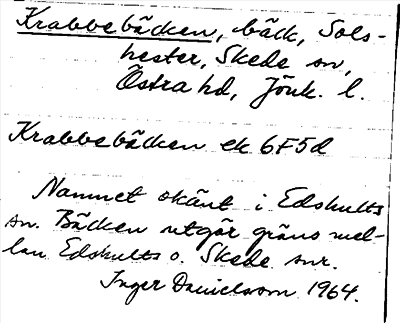 Krabbebäcken, bäck, Sols-
hester, Skede sn,
Östra hd, Jönk. l.
Krabbebäcken ek 6F5d
Namnet okänt i Edshults
sn. Bäcken utgör gräns mel-
lan Edshults o. Skede snr.
Inger Danielsson 1964.